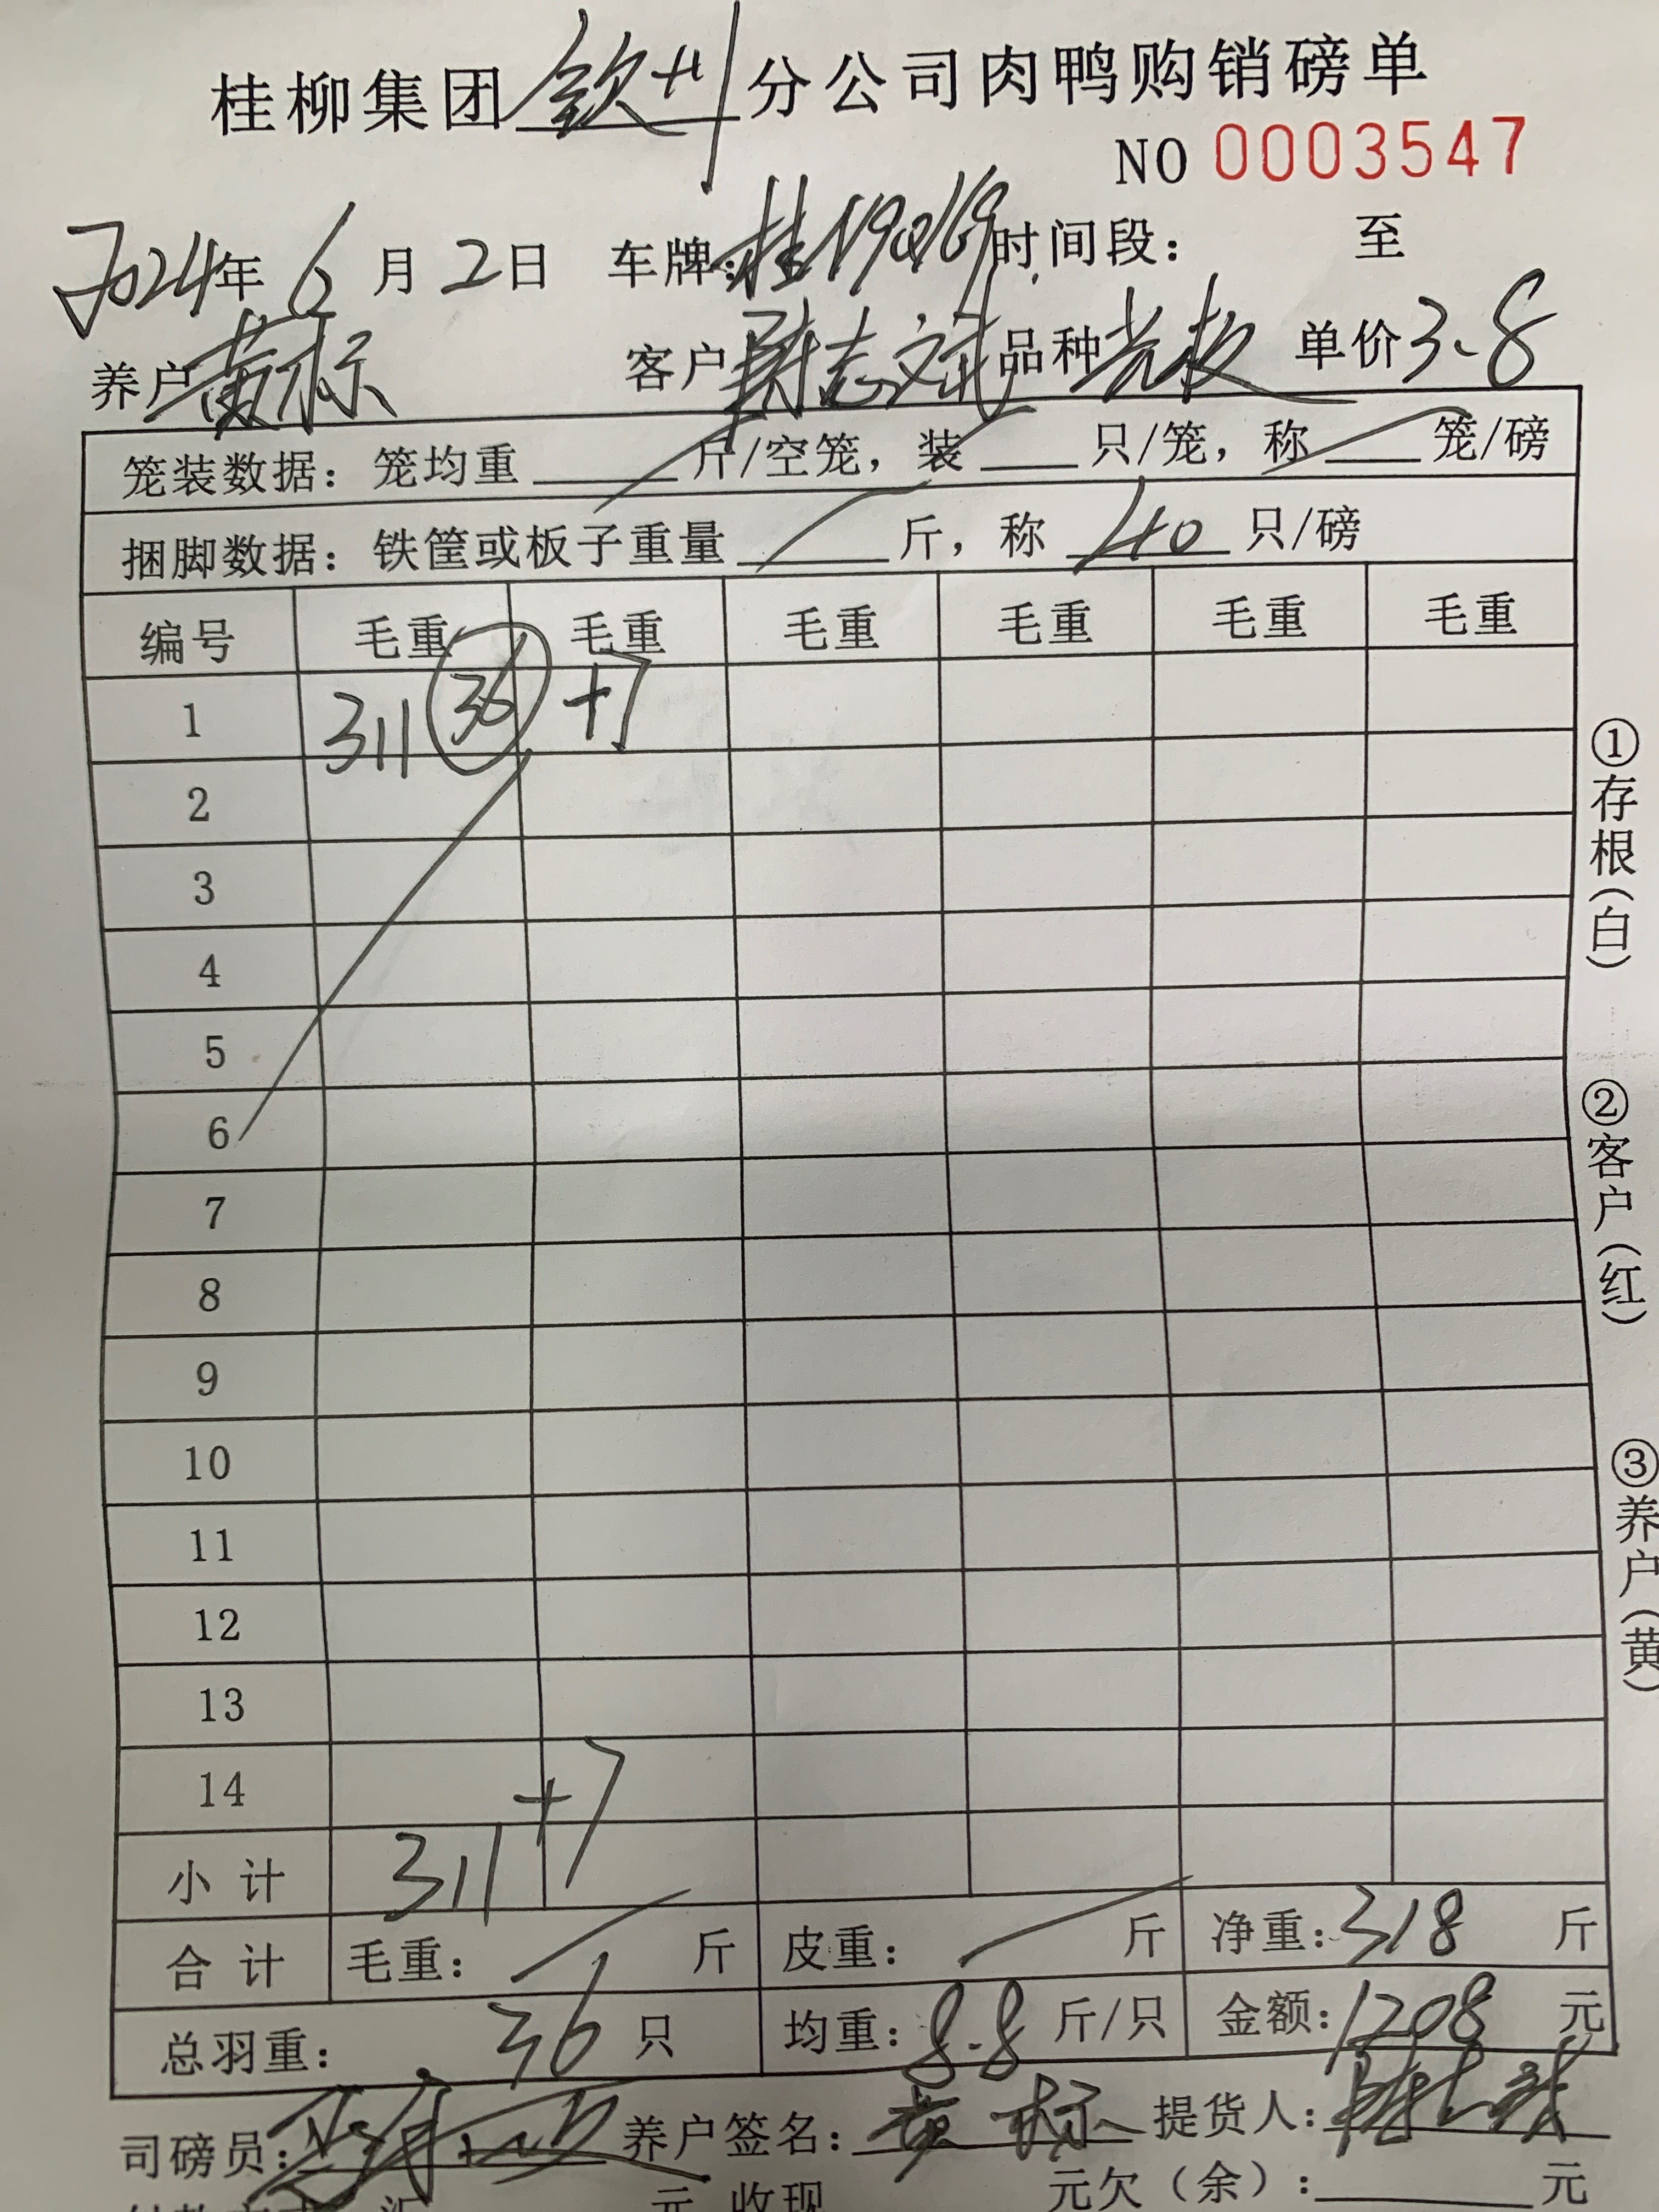 桂柳集团钦州分公司肉鸭购销磅单
NO 0003547
2024年6月2日 车牌:桂N90J69时间段: 至
养户黄标 客户陈志斌品种光板 单价3.8
笼装数据:笼均重 斤/空笼,装 只/笼,称 笼/磅
捆脚数据:铁筐或板子重量 斤,称 40 只/磅
编号 毛重 毛重 毛重 毛重 毛重 毛重
1 311 36 +7
2
3
4
5
6
7
8
9
10
11
12
13
14
小计 311 +7
合计 毛重: 斤 皮重: 斤 净重:318 斤
总羽重: 36 只 均重:8.8 斤/只 金额:1208 元
司磅员: 养户签名:黄标 提货人:
元 收现 元欠(余): 元
①存根(白)
②客户(红)
③养户(黄)